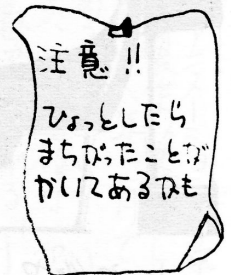 注意!!
ひょっとしたら
まちがったことが
かいてあるかも